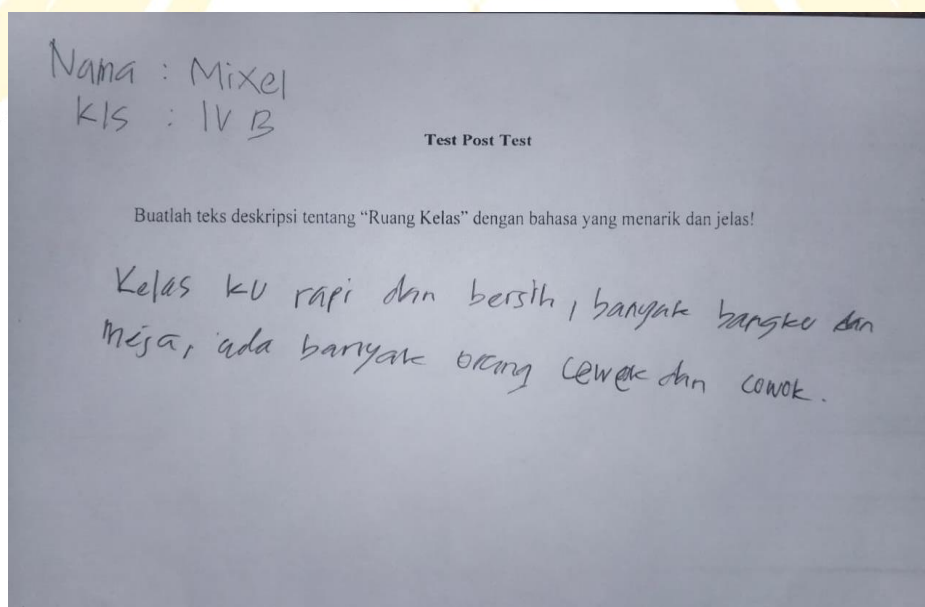 Nama : Mixel
Kls : IV B
Test Post Test
Buatlah teks deskripsi tentang “Ruang Kelas” dengan bahasa yang menarik dan jelas!
Kelas ku rapi dan bersih, banyak bangku dan
meja, ada banyak orang cewek dan cowok.